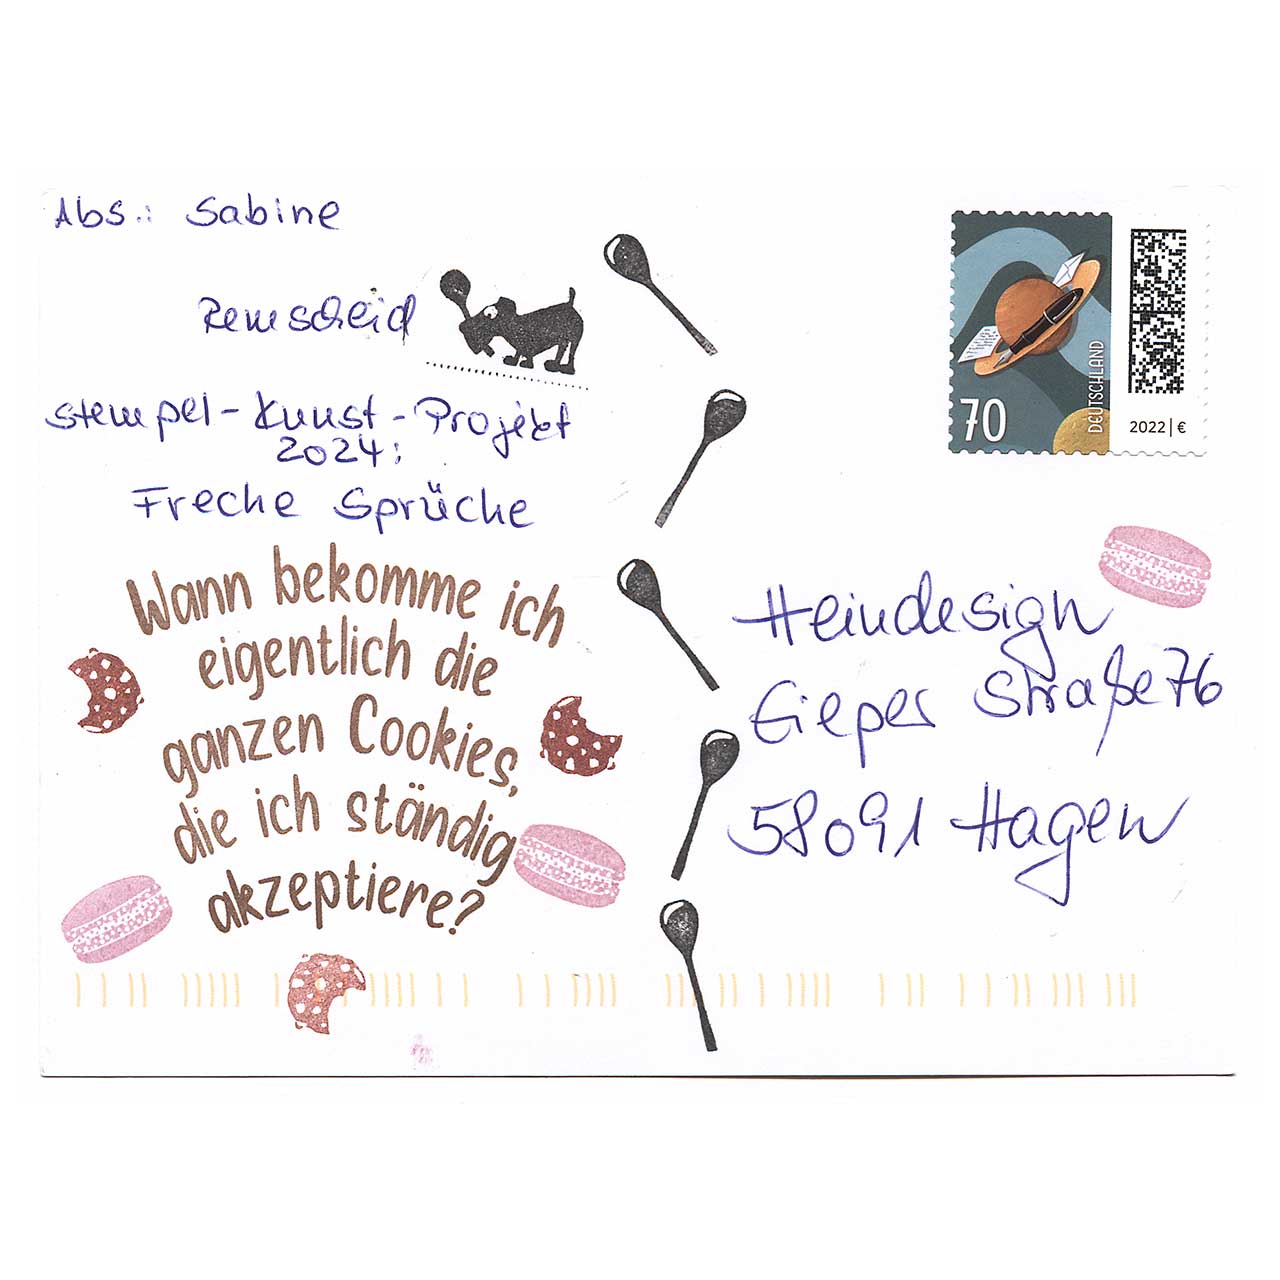 Abs.: Sabine
Remscheid
Stempel-Kunst-Projekt
2024:
Freche Sprüche
Wann bekomme ich
eigentlich die
ganzen Cookies,
die ich ständig
akzeptiere?
70
DEUTSCHLAND
2022 | €
Heindesign
Eilper Straße 76
58091 Hagen